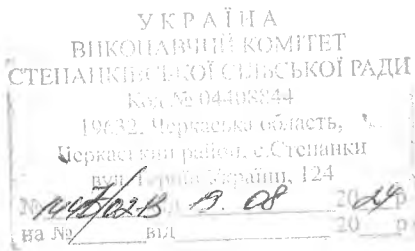 УКРАЇНА
ВИКОНАВЧИЙ КОМІТЕТ
СТЕПАНКІВСЬКОЇ СІЛЬСЬКОЇ РАДИ
Код № 04408844
19632, Черкаська область,
Черкаський район, с.Степанки
вул. Героїв України, 124
№ 02-13 від 19. 08 2024 р
на № від 20 р